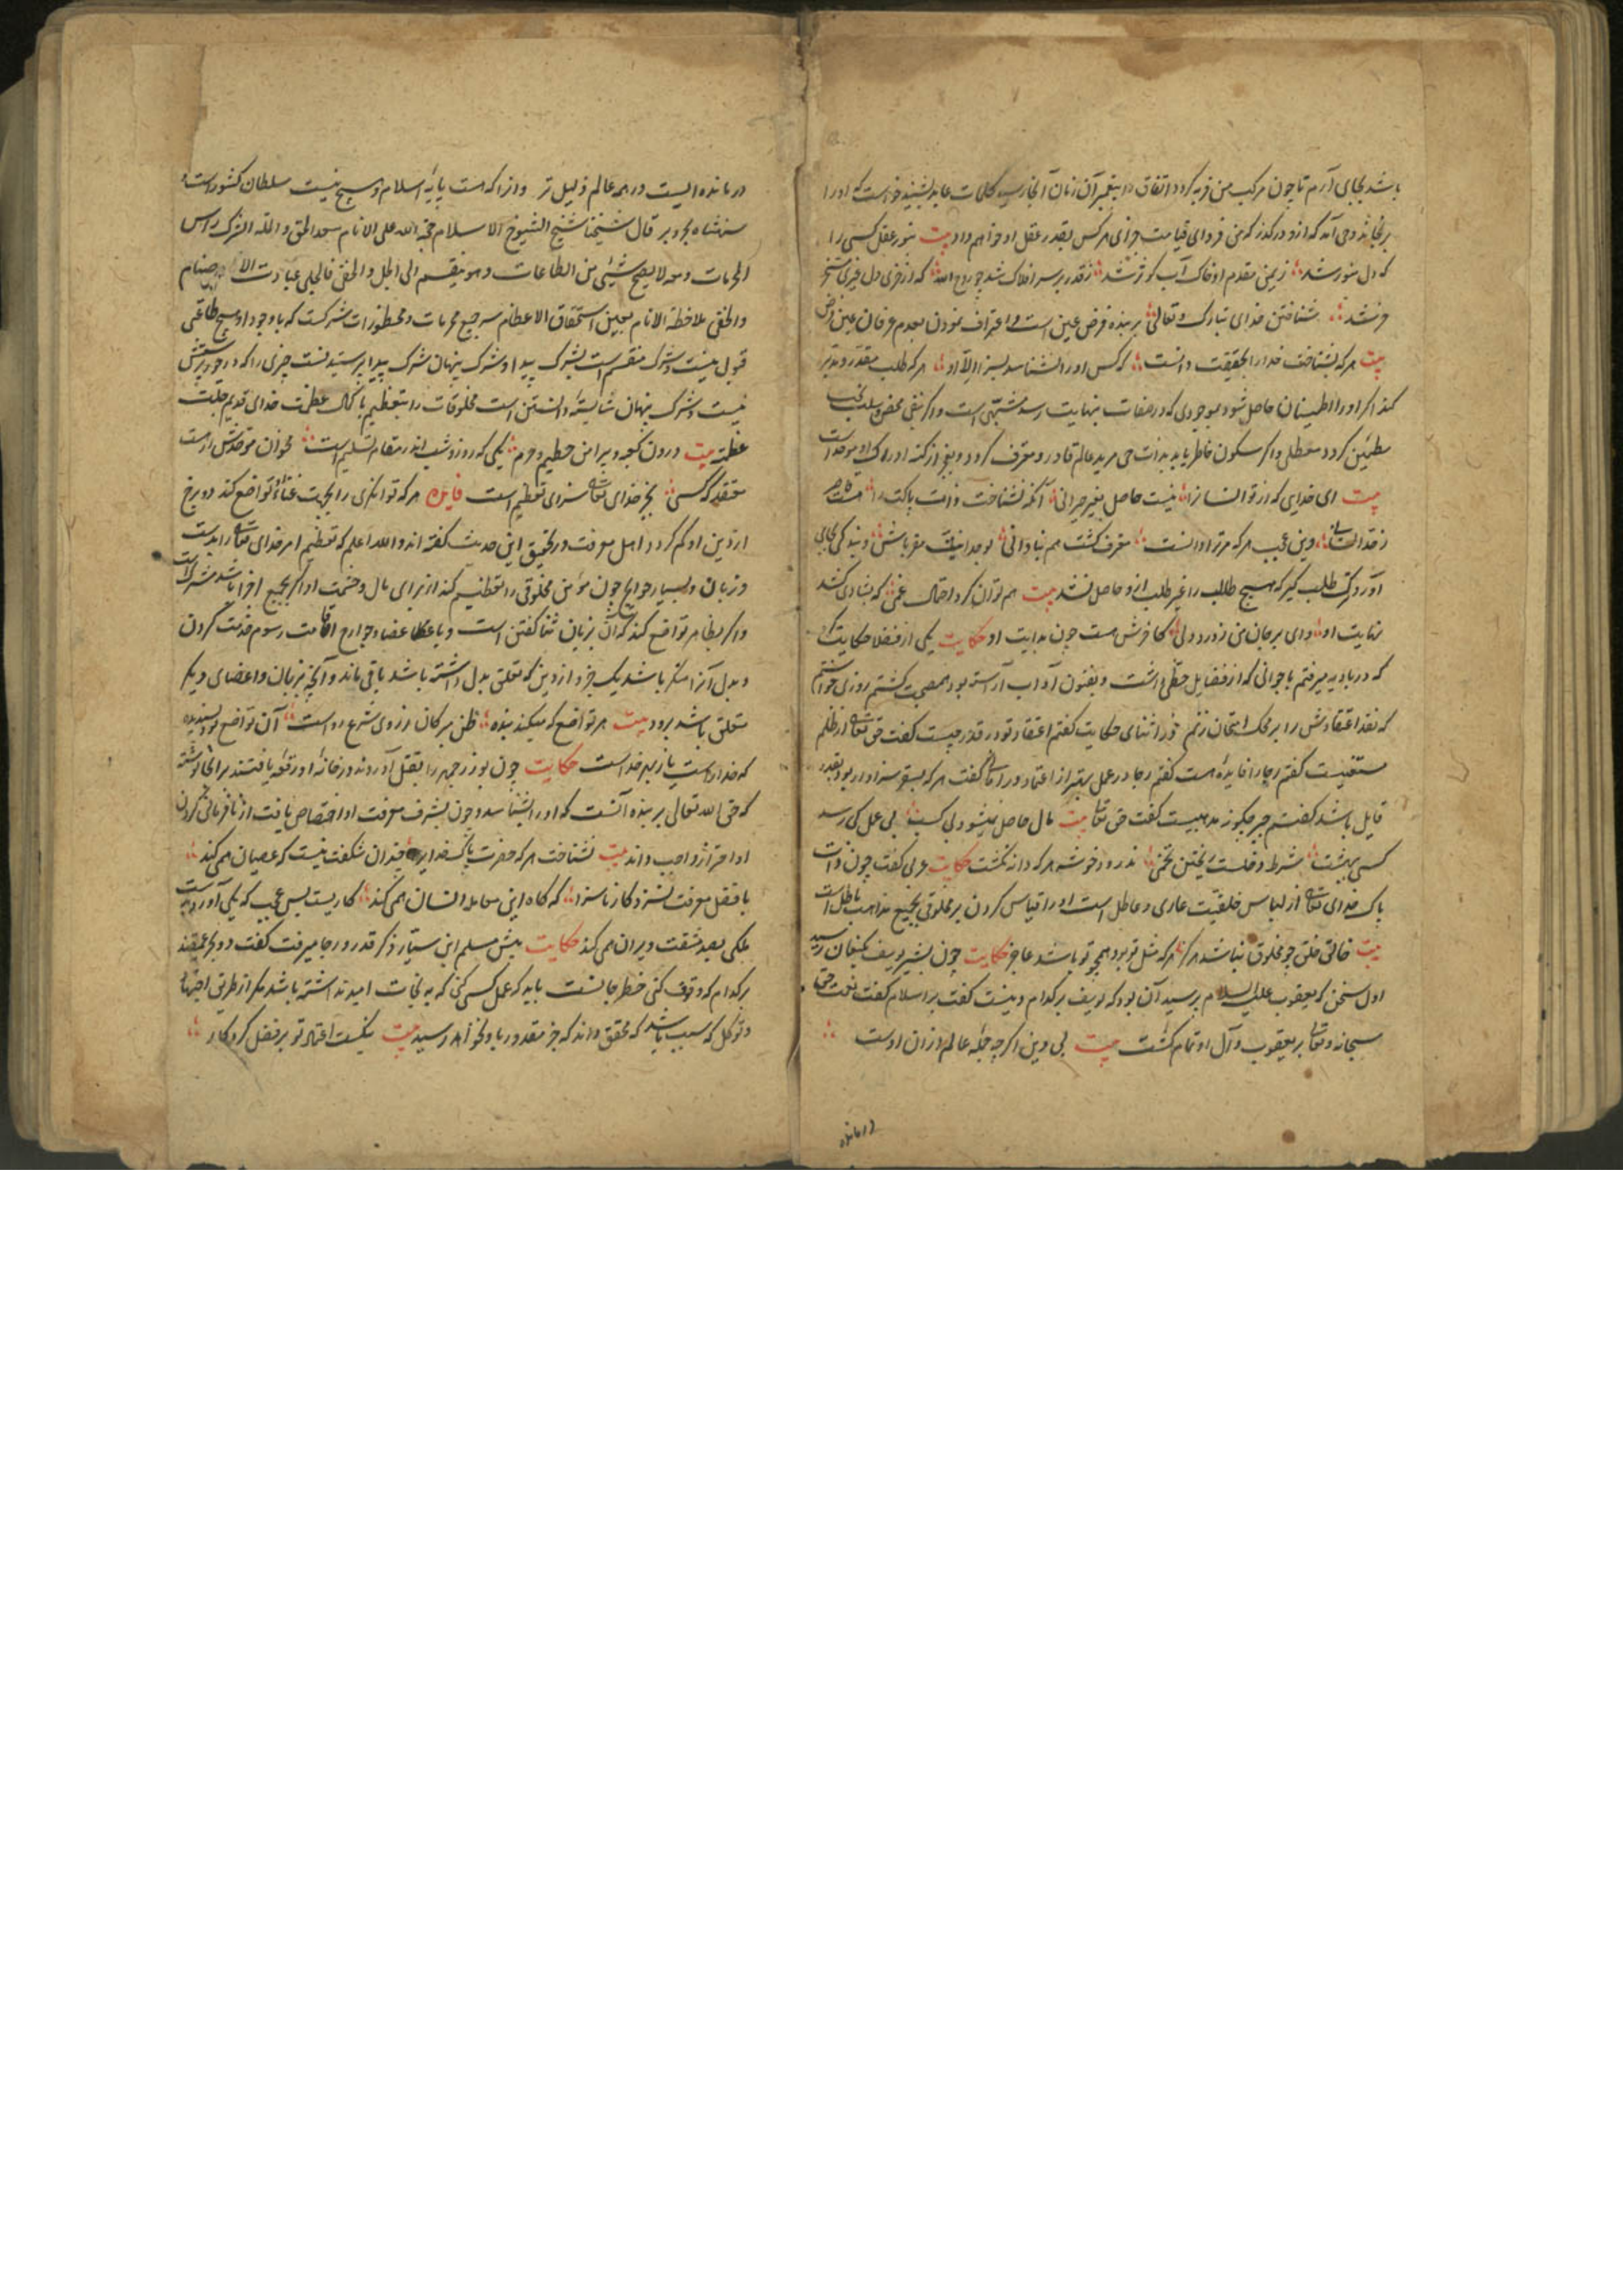 باشد بجای آرم تا چون مرکب من فربه کردد اتفاق را پیغمبر آن زمان آنجا رسید کلمات عابد بشنید خواست که او را
برنجاند وحی آمد که ازو درکذر که من فردای قیامت جزای هر کس بقدر عقل او خواهم داد بیت بنور عقل کسی را
که دل منور شد ز یمن مقدم او خاک آب کوثر شد ز قدر بر سر افلاک شد چو روح الله که از خری دل
خر نشد شناختن خدای تبارک و تعالی بر بنده فرض عین است و اعتراف نمودن بعدم عرفان عین فرض
بیت هر که بشناخت خدا را بحقیقت دانست که کس او را نشناسد بسزا الا او هر که طلب مقدر و مدبر
کند اکر او را اطمینان حاصل شود بموجودی که در صفات بنهایت رسد مشبهی است و اکر بنفی محض و سلب
مطمئن کردد معطلی و اکر سکون خاطر یابد بذات حی مرید عالم قادر و معترف کردد بعجز از کنه ادراک او موحد است
بیت ای خدایی که از تو انسان را نیست حاصل بغیر حیرانی آنکه نشناخت ذات پاکت را
وین عجب هر که مر ترا دانست معترف کشت هم بنادانی بوحدانیت مقر باش و بندکی بجای
آور و ترک طلب کیر که هیچ طالب را غیر طلب ازو حاصل نشد بیت هم توان کرد احتمال غمی که بشادی کشد
نهایت او وای بر جان من ز درد دلی کآخرش هست چون بدایت او حکایت یکی از فضلا حکایت کرد
که در بادیه میرفتم با جوانی که از فضایل حظی داشت و بفنون آداب آراسته بود هم صحبت کشتم روزی خواستم
که نقد اعتقادش را بر محک امتحان زنم در اثنای حکایت کفتم اعتقاد تو در قدر چیست کفت حق تعالی از ظلم
مستغنیست کفتم رجا را فایده هست کفتم رجا در عمل بهتر از اعتماد کفت هر که
قایل باشد کفتم جبر چکونه مذهبیست کفت حق تعالی بیت مال حاصل نمیشود بی کسب بی عمل کی رسد
کسی ببهشت شرط دخلست ریختن تخمی ندرود خوشه هر که دانه نکشت حکایت ولی کفت چون ذات
پاک خدای تعالی از لباس خلقیت عاری و عاطل است او را قیاس کردن بر مخلوقی بجمیع مذاهب باطل است
بیت خالق خلق چو مخلوق نباشد هرکز هر که مثل تو بود همچو تو باشد عاجز حکایت چون بشیر یوسف بکنعان رسید
اول سخن که یعقوب علیه السلام پرسید آن بود که یوسف بر کدام دینست کفت بر اسلام کفت نعمت حق
سبحانه و تعالی بر یعقوب و آل او تمام کشت بیت بی دین اکرچه جمله عالم از آن اوست
درمانده
درمانده ایست در همه عالم ذلیل تر وانرا که هست پایه اسلام و هیچ نیست سلطان کشورست و
شهنشاه بحر و بر قال شیخنا شیخ الشیوخ الاسلام حجة الله علی الانام سعد الحق و المله الشرک راس
المحرمات و معه لا یصح شیئی من الطاعات و هو ینقسم الی الجلی و الخفی فالجلی عبادت الاصنام
والخفی ملاحظة الانام بعین استحقاق الاعظام سر جمیع محرمات و محظورات شرکست که با وجود او هیچ طاعتی
قبول نیست و شرک منقسم است بشرک پیدا و شرک پنهان شرک پیدا پرستیدنست چیزی را که درخور پرستش
نیست و شرک پنهان شایسته دانستن است مخلوقات را بتعظیم با کمال عظمت خدای قدیم جلت
عظمته بیت درون کعبه و پیرامن حطیم و حرم یکی که روز و شب اندر مقام تسلیم است مخوان موحدش ار هست
معتقد که کسی بجز خدای تعالی سزای تعظیم است فایده هر که توانکری را بجهت غناء او تواضع کند دو برخ
از دین او کم کردد اهل معرفت در تحقیق این حدیث کفته اند والله اعلم که تعظیم امر خدای تعالی را بدلست
و زبان و بسیار جوارح چون مؤمن مخلوقی را تعظیم کند از برای مال و حشمت او اکر بجمیع اجزا باشد مشرک است
و اکر بظاهر تواضع کند که آن بزبان ثنا کفتن است و باعضا و جوارح اقامت رسوم خدمت کردن
و بدل آنرا منکر باشد یک جزو از دین که تعلق بدل داشته باشد باقی ماند و آنچه بزبان و اعضای دیکر
متعلق باشد برود بیت هر تواضع که میکند بنده ظن مبر کان ز روی شرع رواست آن تواضع بود پسندیده
که خدا راست یا ز بهر خداست حکایت چون بوزرجمهر را بقتل آوردند در خانه او رقعه یافتند بر آنجا نوشته
که حق الله تعالی بر بنده آنست که او را بشناسد و چون بشرف معرفت او اختصاص یافت از نافرمانی کردن
او احتراز واجب داند بیت نشناخت هر که حضرت پاک خدای را چندان شکفت نیست که عصیان همی کند
با فضل معرفت نسزد کار ناسزا که کاه این معامله انسان همی کند کاریست بس عجب که یکی آورد بدست
ملکی بصد مشقت و ویران همی کند حکایت پیش مسلم ابن سیار ذکر قدر و رجا میرفت کفت دو بحر عمیقند
بر کدام که وقوف کنی خطر جانست باید که عمل کسی کنی که به نجات امید نداشته باشد مکر از طریق اجتهاد
و توکل کسی باشد که محقق داند که جز مقدور باو نخواهد رسید بیت نیکست اعتماد تو بر فضل کردکار